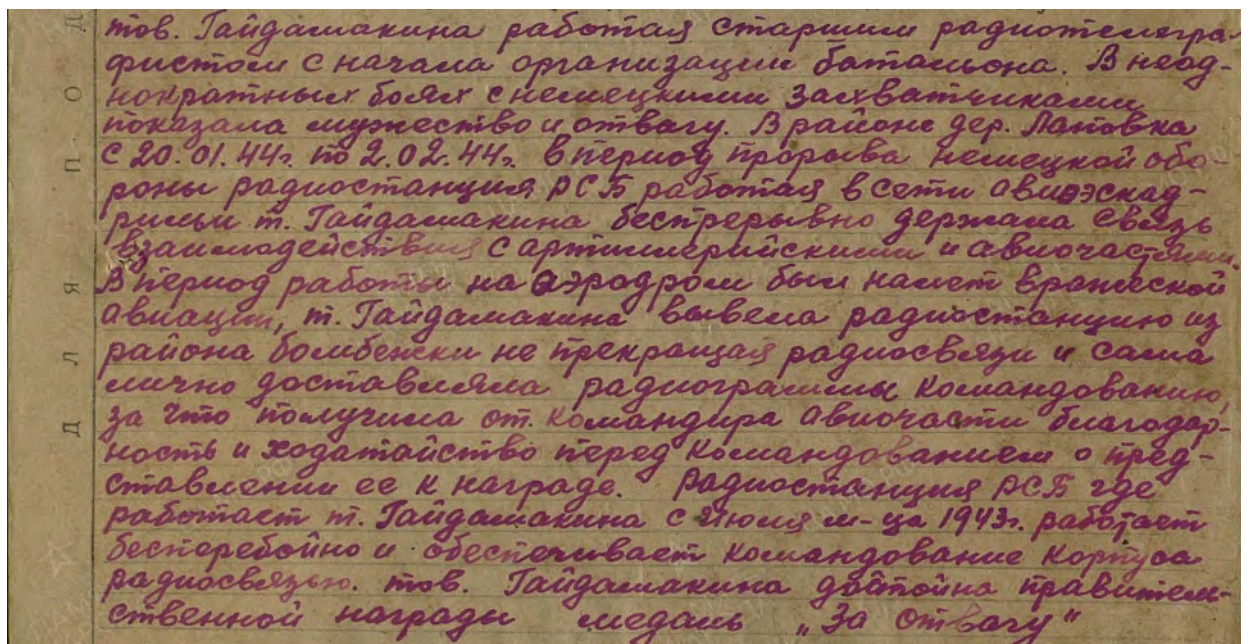 тов. Гайдамакина работая старшим радиотелегра-
фистом с начала организации батальона. В неод-
нократных боях с немецкими захватчиками
показала мужество и отвагу. В районе дер. Лановка
с 20.01.44г. по 2.02.44г. в период прорыва немецкой обо-
роны радиостанция РСБ работая в сети авиаэскад-
рильи т. Гайдамакина беспрерывно держала связь
взаимодействия с артиллерийскими и авиочастями.
В период работы на аэродром был налет вражеской
авиации, т. Гайдамакина вывела радиостанцию из
района бомбежки не прекращая радиосвязи и сама
лично доставляла радиограммы командованию,
за что получила от командира авиочасти благодар-
ность и ходатайство перед командованием о пред-
ставлении ее к награде. Радиостанция РСБ где
работает т. Гайдамакина с Июля м-ца 1943г. работает
бесперебойно и обеспечивает командование корпуса
радиосвязью. тов. Гайдамакина достойна правитель-
ственной награды медаль „За отвагу"
Д Л Я П О Д